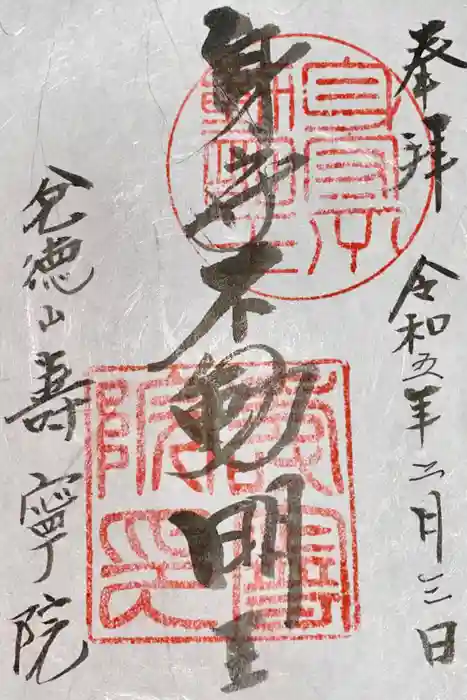 奉拝
令和五年二月三日
身守不動明王
徳山壽寧院